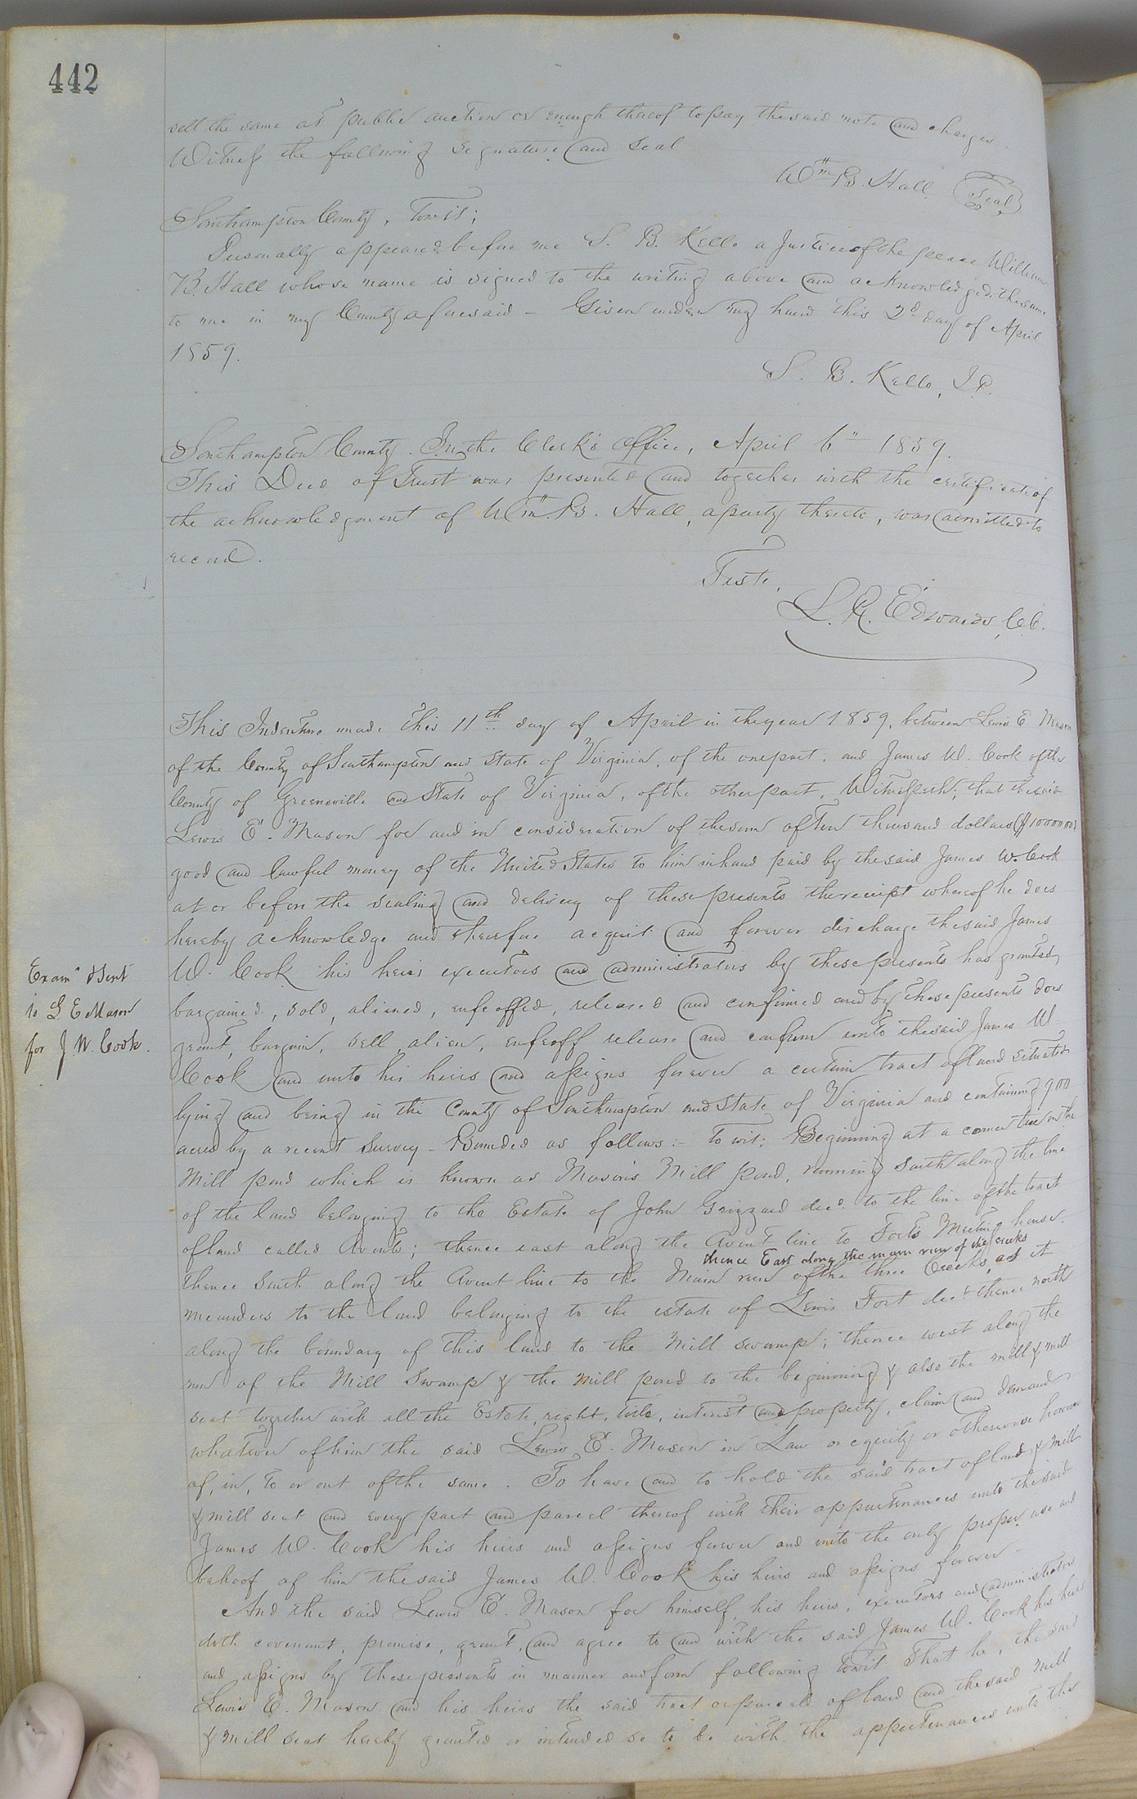 442
sell the same at public auction or enough thereof to pay the said note and charges.
Witness the following signature and seal
Wm B. Hall (Seal)
Southampton County, Towit;
Personally appeared before me S. B. Kello a Justice of the peace William
B. Hall whose name is signed to the writing above and acknowledged the same
to me in my County aforesaid - Given under my hand this 2d day of April
1859.
S. B. Kello, J.P.
Southampton County. In the Clerk's Office, April 6th 1859.
This Deed of Trust was presented and together with the certificate of
the acknowledgment of Wm. B. Hall, a party thereto, was admitted to
record.
Teste,
L. R. Edwards, C.C.
This Indenture made this 11th day of April in the year 1859, between Lewis E Mason
of the County of Southampton and State of Virginia, of the one part, and James W. Cook of the
County of Greensville and State of Virginia, of the other part, Witnesseth; that the said
Lewis E. Mason for and in consideration of the sum of Ten thousand dollars ($10000.00)
good and lawful money of the United States to him in hand paid by the said James W. Cook
at or before the sealing and delivery of these presents the receipt whereof he does
hereby acknowledge and therefore acquit and forever discharge the said James
W. Cook his heirs executors and administrators by these presents has granted,
bargained, sold, aliened, enfeoffed, released and confirmed and by these presents does
grant, bargain, sell, alien, enfeoff release and confirm unto the said James W
Cook and unto his heirs and assigns forever a certain tract of land situated
lying and being in the County of Southampton and State of Virginia and containing 900
acres by a recent survey - Bounded as follows:- To wit: Beginning at a corner tree in the
Mill pond which is known as Mason's Mill pond, running South along the line
of the land belonging to the Estate of John Grizzard decd. to the line of the tract
of land called Avents; thence east along the Avent line to Forts Meeting house.
thence South along the Avent line to the Main run of the three Creeks, thence East along the main run of the creeks as it
meanders to the land belonging to the estate of Lewis Fort decd thence north
along the boundary of this land to the Mill swamp; thence west along the
run of the Mill Swamp & the Mill pond to the beginning & also the mill & mill
seat together with all the Estate, right, title, interest and property, claim and demand
whatever of him the said Lewis E. Mason in Law or equity or otherwise however
of, in, to or out of the same. To have and to hold the said tract of land & mill
& mill seat and every part and parcel thereof with their appurtenances unto the said
James W. Cook his heirs and assigns forever and unto the only proper use and
behoof of him the said James W. Cook his heirs and assigns forever -
And the said Lewis E. Mason for himself, his heirs, executors and administrators
doth covenant, promise, grant, and agree to and with the said James W. Cook his heirs
and assigns by these presents in manner and form following towit That he, the said
Lewis E. Mason and his heirs the said tract or parcel of land and the said Mill
& mill seat hereby granted or intended so to be with the appurtenances unto the
Examd & Sent
to L E Mason
for J. W. Cook.